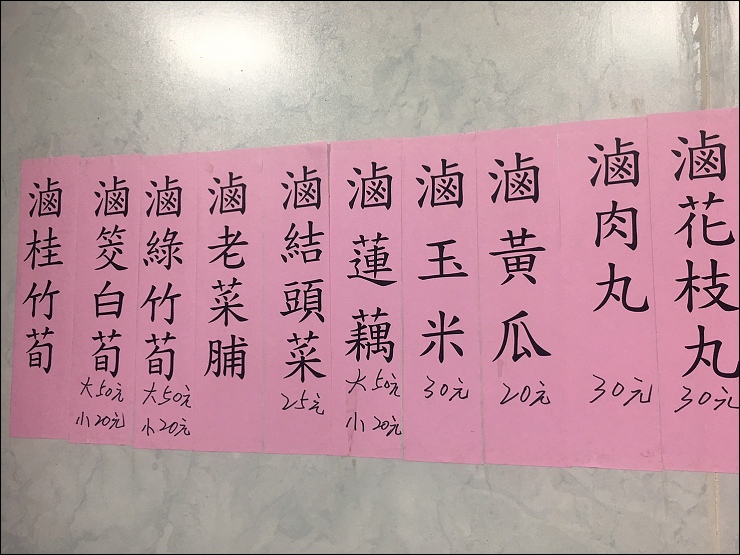 滷花枝丸
30元
滷肉丸
30元
滷黃瓜
20元
滷玉米
30元
滷蓮藕
大50元
小20元
滷結頭菜
25元
滷老菜脯
滷綠竹荀
大50元
小20元
滷筊白荀
大50元
小20元
滷桂竹荀